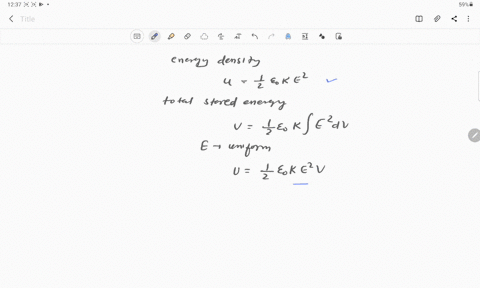 12:37
59%
Title
energy density
u = 1/2 ε₀ K E²
total stored energy
U = 1/2 ε₀ K ∫ E² dV
E → uniform
U = 1/2 ε₀ K E² V